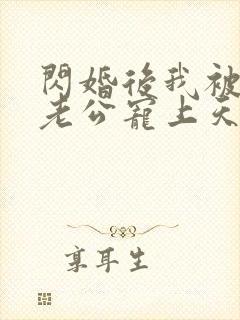 閃婚後我被
老公寵上天
享耳生